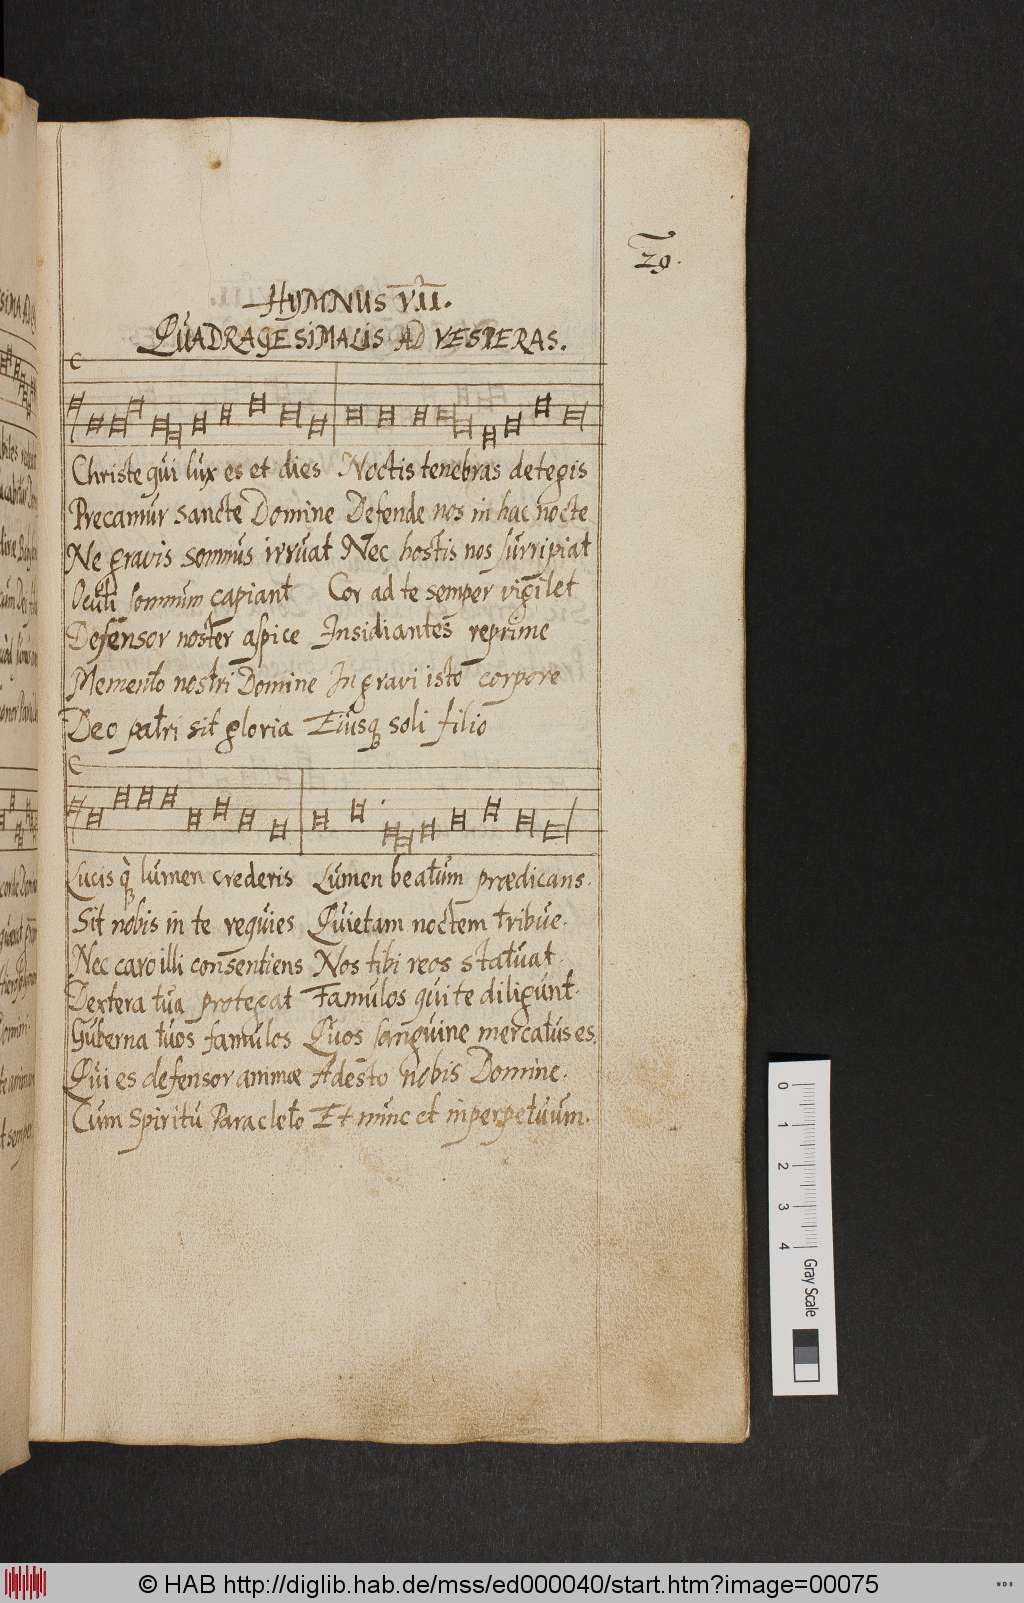 29.
HYMNUS VII.
QUADRAGESIMALIS AD VESPERAS.
Christe qui lux es et dies Noctis tenebras detegis
Precamur sancte Domine Defende nos in hac nocte
Ne gravis somnus irruat Nec hostis nos surripiat
Oculi somnum capiant Cor ad te semper vigilet
Defensor noster aspice Insidiantes reprime
Memento nostri Domine In gravi isto corpore
Deo patri sit gloria Eiusq soli filio
Lucis q lumen crederis Lumen beatum prædicans.
Sit nobis in te requies Quietam noctem tribue.
Nec caro illi consentiens Nos tibi reos statuat.
Dextera tua protegat Famulos qui te diligunt.
Guberna tuos famulos Quos sanguine mercatus es.
Qui es defensor animæ Adesto nobis Domine.
Cum Spiritu Paracleto Et nunc et inperpetuum.
0 1 2 3 4 Gray Scale
© HAB http://diglib.hab.de/mss/ed000040/start.htm?image=00075